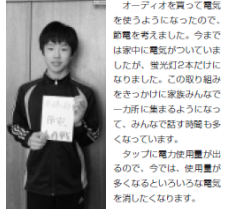 オーディオを買って電気
を使うようになったので、
節電を考えました。今まで
は家中に電気がついていま
したが、蛍光灯2本だけに
なりました。この取り組み
をきっかけに家族みんなで
一カ所に集まるようになっ
て、みんなで話す時間も多
くなっています。
　タップに電力使用量が出
るので、今では、使用量が
多くなるといろいろな電気
を消したくなります。